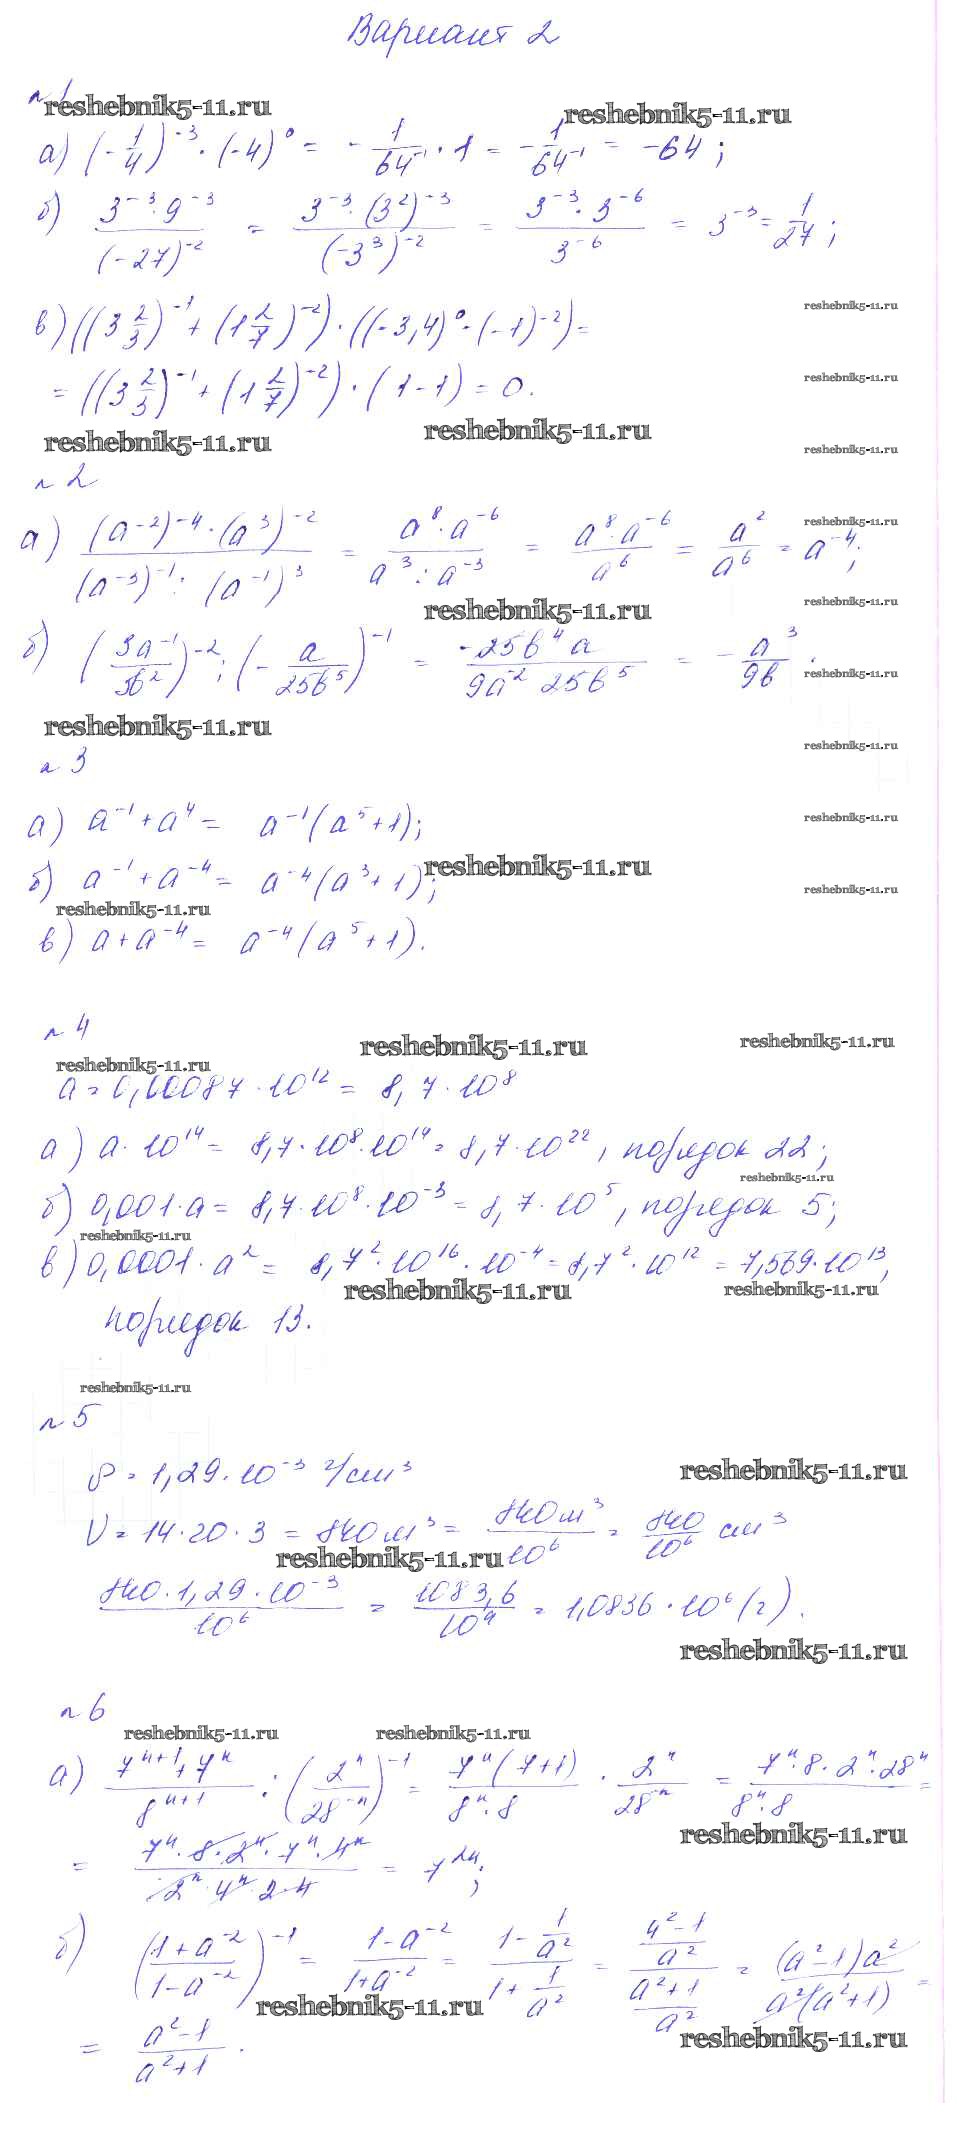 Вариант 2
№1
reshebnik5-11.ru reshebnik5-11.ru
а) (-1/4)⁻³ · (-4)⁰ = -1/64⁻¹ · 1 = -1/64⁻¹ = -64;
б) (3⁻³ · 9⁻³)/(-27)⁻² = (3⁻³ · (3²)⁻³)/(-3³)⁻² = (3⁻³ · 3⁻⁶)/3⁻⁶ = 3⁻³ = 1/27;
в) ((3 2/3)⁻¹ + (1 2/7)⁻²) · ((-3,4)⁰ - (-1)⁻²) =
reshebnik5-11.ru
= ((3 2/3)⁻¹ + (1 2/7)⁻²) · (1-1) = 0.
reshebnik5-11.ru
reshebnik5-11.ru reshebnik5-11.ru reshebnik5-11.ru
№2
а) ((a⁻²)⁻⁴ · (a³)⁻²)/((a⁻³)⁻¹ : (a⁻¹)³) = (a⁸ · a⁻⁶)/(a³ : a⁻³) = (a⁸ · a⁻⁶)/a⁶ = a²/a⁶ = a⁻⁴;
reshebnik5-11.ru
reshebnik5-11.ru reshebnik5-11.ru
б) (3a⁻¹/5b²)⁻² : (-a/25b⁵)⁻¹ = -25b⁴a/9a⁻²25b⁵ = -a³/9b.
reshebnik5-11.ru
reshebnik5-11.ru reshebnik5-11.ru
№3
а) a⁻¹ + a⁴ = a⁻¹(a⁵+1);
reshebnik5-11.ru
б) a⁻¹ + a⁻⁴ = a⁻⁴(a³+1);
reshebnik5-11.ru reshebnik5-11.ru
reshebnik5-11.ru
в) a + a⁻⁴ = a⁻⁴(a⁵+1).
№4
reshebnik5-11.ru reshebnik5-11.ru
reshebnik5-11.ru
a = 0,00087 · 10¹² = 8,7 · 10⁸
а) a · 10¹⁴ = 8,7 · 10⁸ · 10¹⁴ = 8,7 · 10²², порядок 22;
reshebnik5-11.ru
б) 0,001 · a = 8,7 · 10⁸ · 10⁻³ = 8,7 · 10⁵, порядок 5;
reshebnik5-11.ru
в) 0,0001 · a² = 8,7² · 10¹⁶ · 10⁻⁴ = 8,7² · 10¹² = 7,569 · 10¹³,
reshebnik5-11.ru reshebnik5-11.ru
порядок 13.
reshebnik5-11.ru
№5
ρ = 1,29 · 10⁻³ г/см³
reshebnik5-11.ru
V = 14 · 20 · 3 = 840 м³ = 840 м³/10⁶ = 840/10⁶ см³
reshebnik5-11.ru
(840 · 1,29 · 10⁻³)/10⁶ = 1083,6/10⁹ = 1,0836 · 10⁶ (г).
reshebnik5-11.ru
№6
reshebnik5-11.ru reshebnik5-11.ru
а) (7ⁿ⁺¹+7ⁿ)/8ⁿ⁺¹ : (2ⁿ/28⁻ⁿ)⁻¹ = 7ⁿ(7+1)/(8ⁿ · 8) · 2ⁿ/28⁻ⁿ = (7ⁿ · 8 · 2ⁿ · 28ⁿ)/(8ⁿ · 8) =
reshebnik5-11.ru
= (7ⁿ · 8 · 2ⁿ · 7ⁿ · 4ⁿ)/(2ⁿ · 4ⁿ · 2 · 4) = 7²ⁿ;
б) ((1+a⁻²)/(1-a⁻²))⁻¹ = (1-a⁻²)/(1+a⁻²) = (1-1/a²)/(1+1/a²) = ((4²-1)/a²)/((a²+1)/a²) = (a²-1)a²/a²(a²+1) =
reshebnik5-11.ru
= (a²-1)/(a²+1).
reshebnik5-11.ru